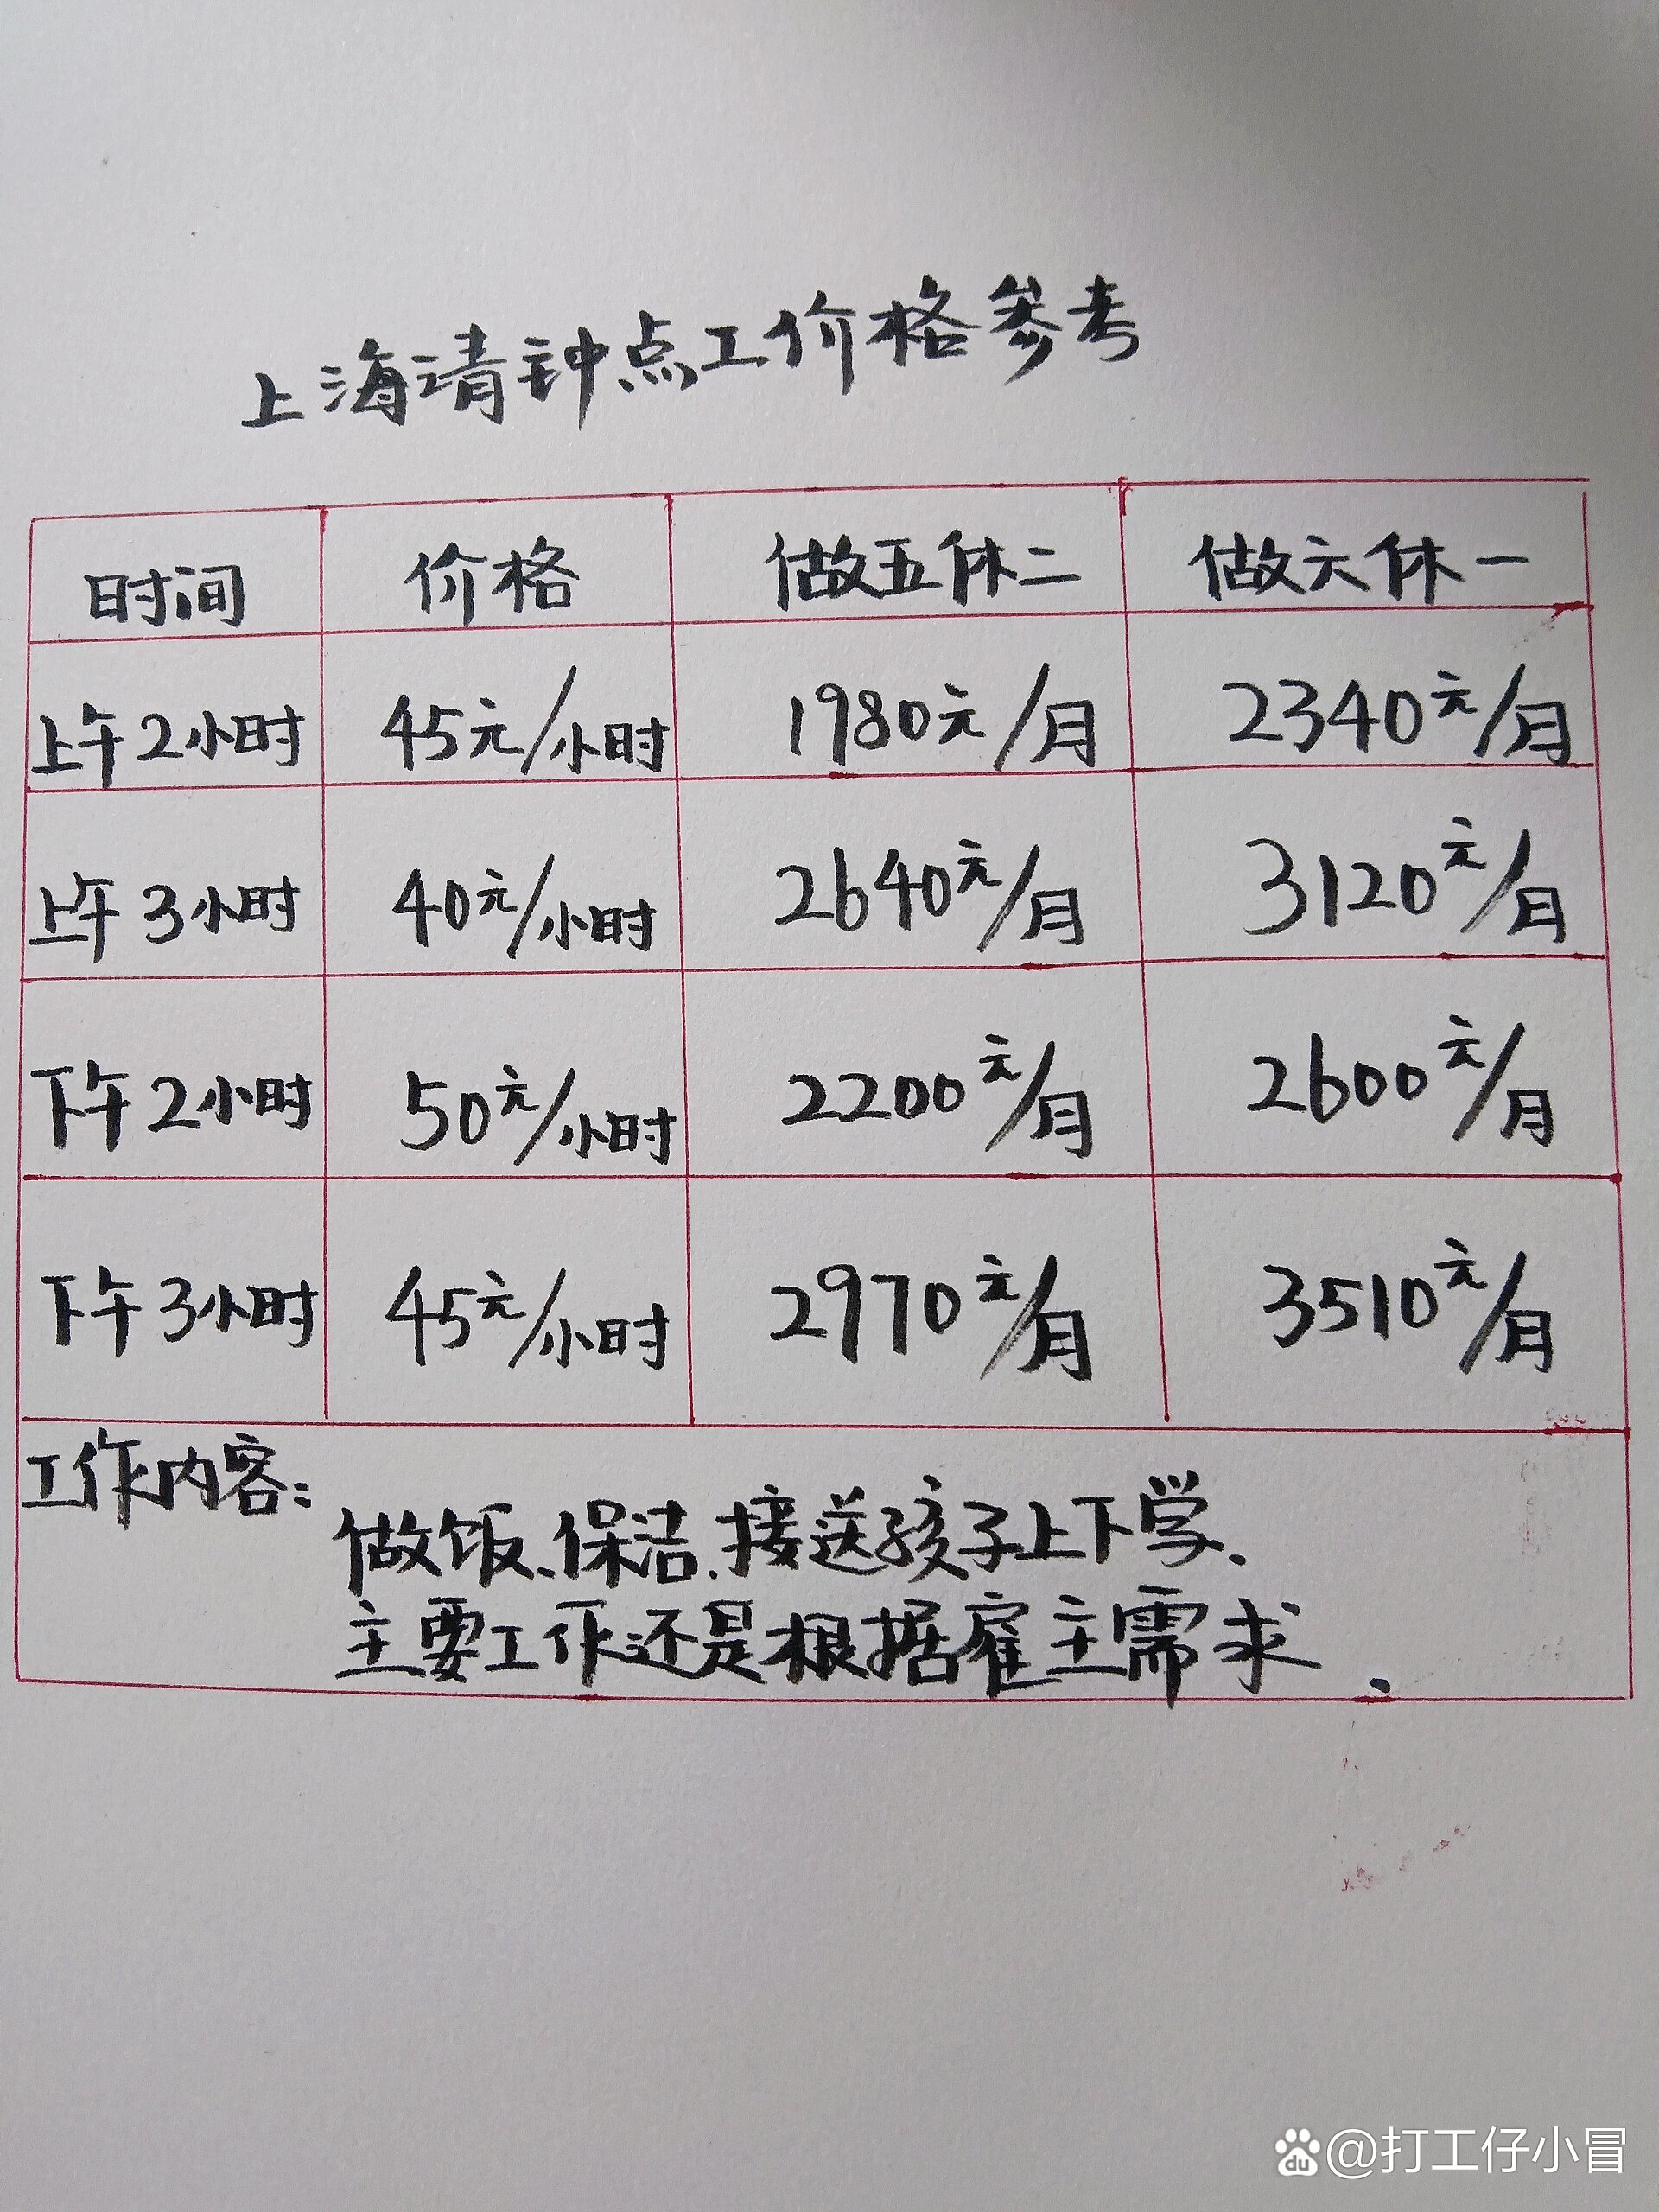 上海请钟点工价格参考
时间 价格 做五休二 做六休一
上午2小时 45元/小时 1980元/月 2340元/月
上午3小时 40元/小时 2640元/月 3120元/月
下午2小时 50元/小时 2200元/月 2600元/月
下午3小时 45元/小时 2970元/月 3510元/月
工作内容:
做饭、保洁、接送孩子上下学、
主要工作还是根据雇主需求、
du @打工仔小冒